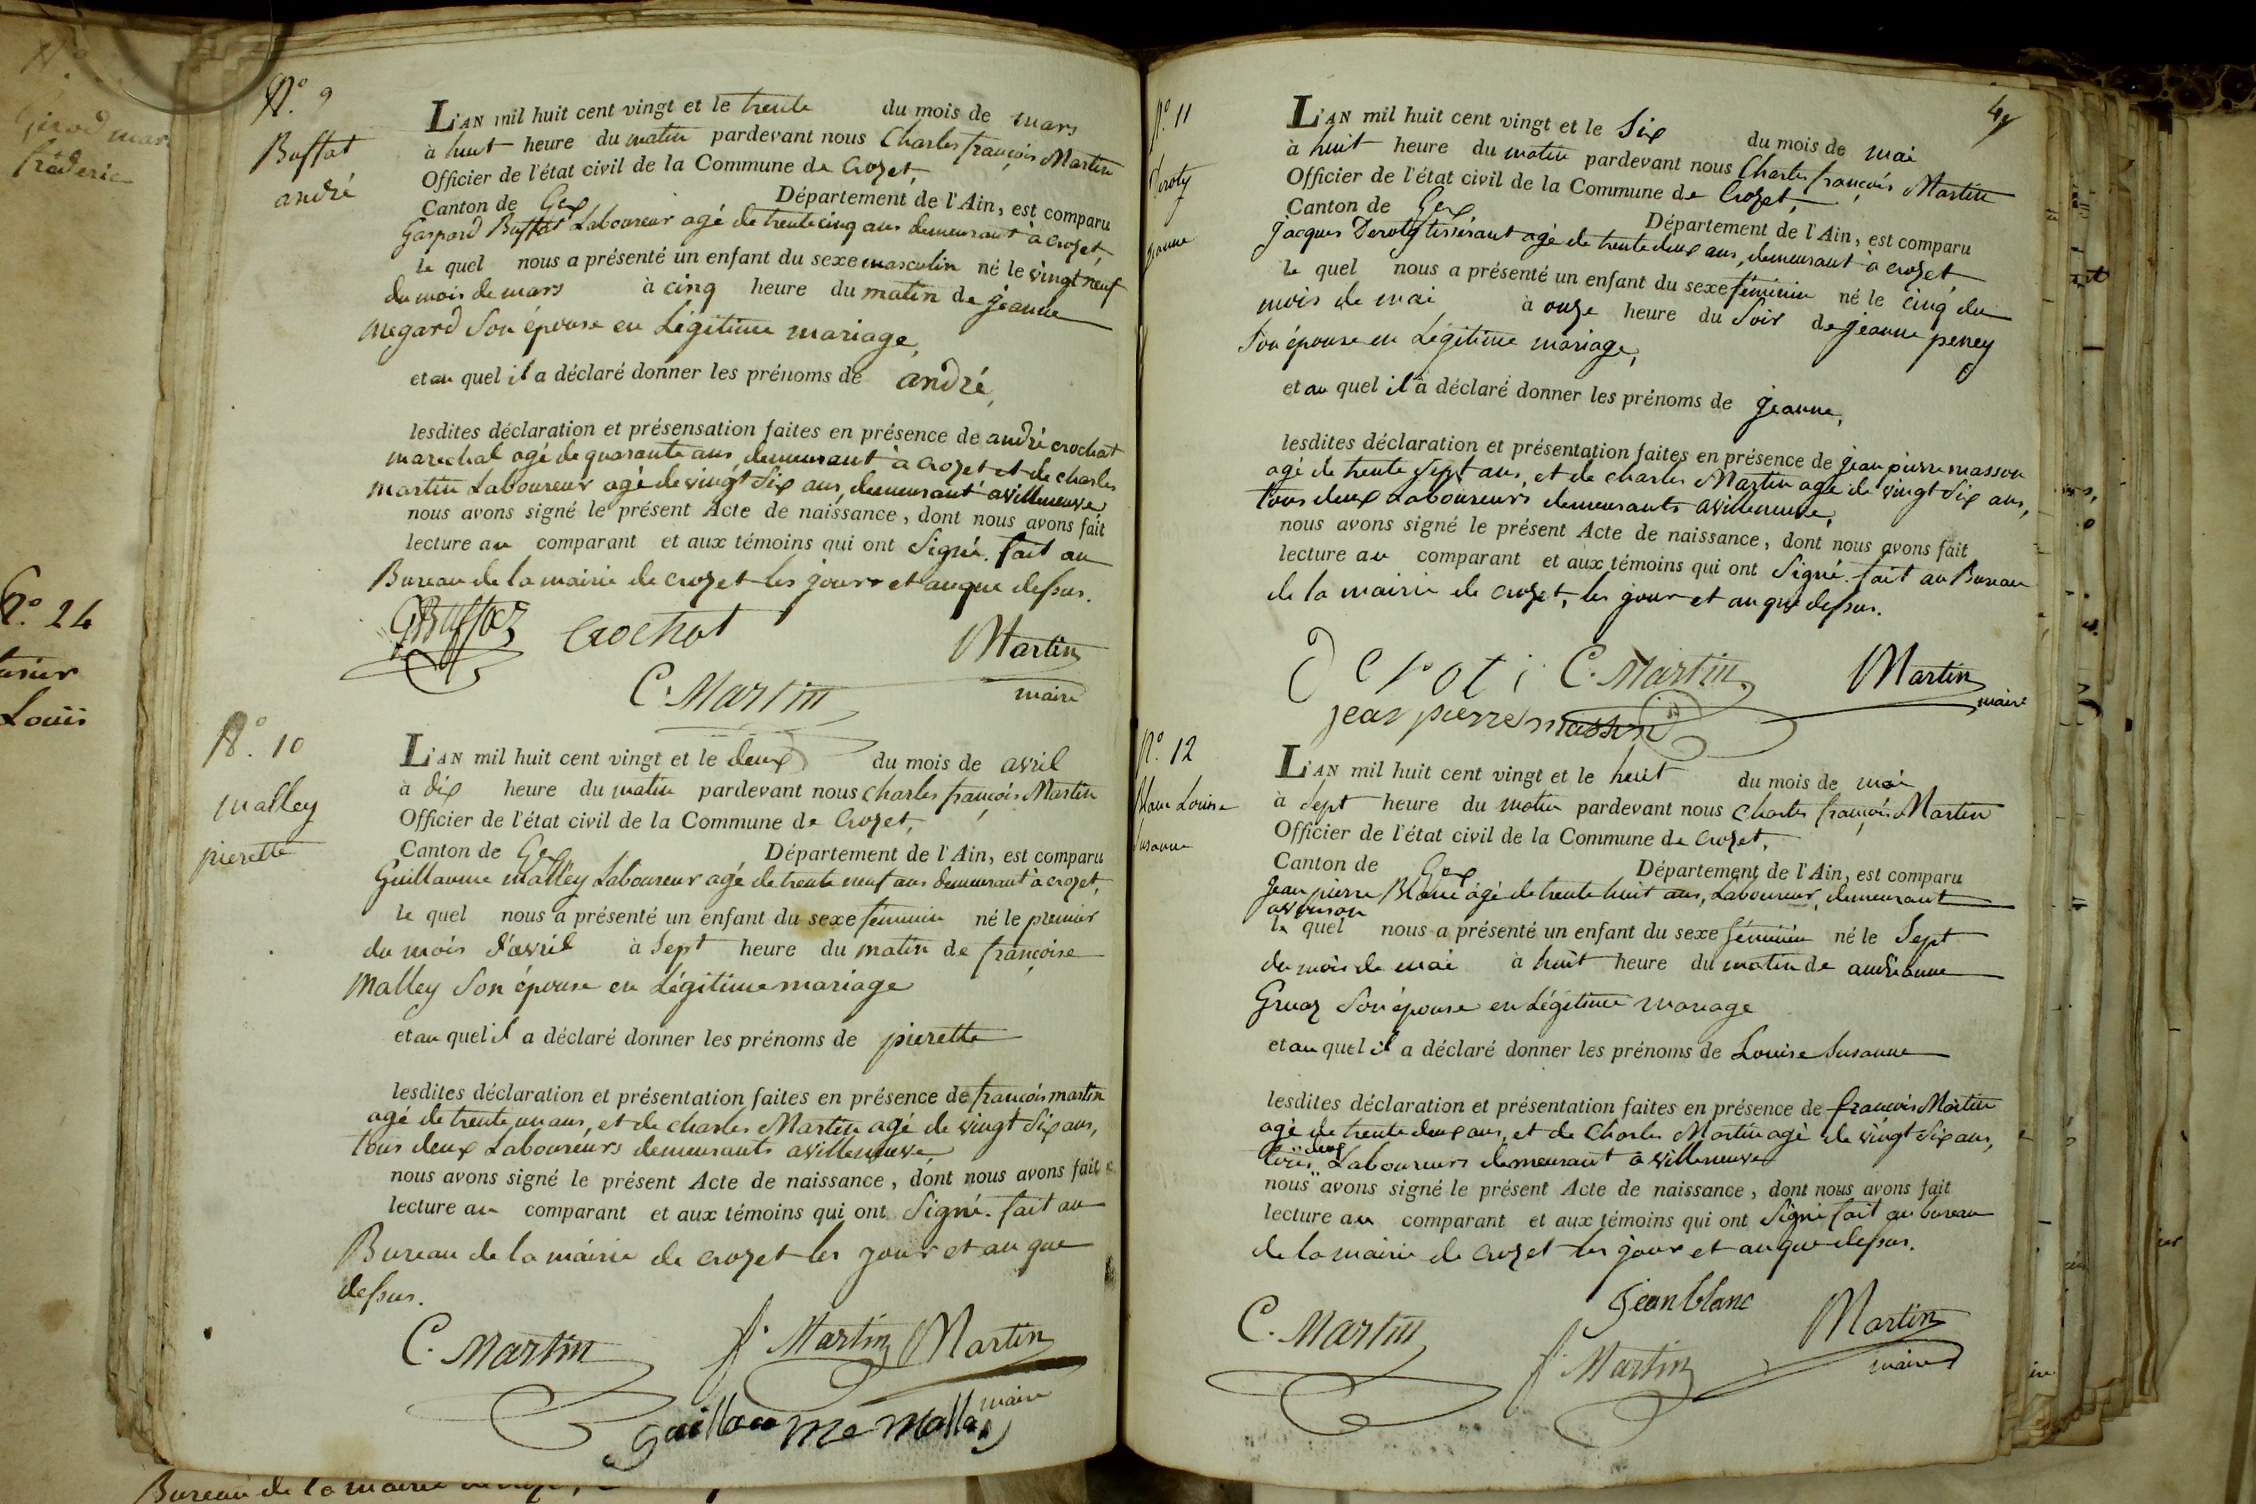 Girod mar
fréderic
N.° 24
Louis
N.° 9
Buffat
andré
L'AN mil huit cent vingt et le trente du mois de mars
à huit heure du matin pardevant nous Charles françois Martin
Officier de l'état civil de la Commune de Crozet,
Canton de Gex Département de l'Ain, est comparu
Gaspard Buffat Laboureur agé de trente cinq ans demeurant à crozet,
le quel nous a présenté un enfant du sexe masculin né le vingt neuf
du mois de mars à cinq heure du matin de jeanne
megard Son épouse en Légitime mariage,
et au quel il a déclaré donner les prénoms de andré,
lesdites déclaration et présensation faites en présence de andré crochat
marechal agé de quarante ans, demeurant à crozet et de charles
martin Laboureur agé de vingt Six ans, demeurant a villeneuve,
nous avons signé le présent Acte de naissance, dont nous avons fait
lecture au comparant et aux témoins qui ont Signé. fait au
Bureau de la mairie de crozet les jour et an que dessus.
GBuffaz Crochat Martin
C. Martin maire
N.° 10
malley
pierette
L'AN mil huit cent vingt et le deux du mois de avril
à dix heure du matin pardevant nous charles françois Martin
Officier de l'état civil de la Commune de Crozet,
Canton de Gex Département de l'Ain, est comparu
Guillaume malley Laboureur agé de trente neuf ans demeurant à crozet,
le quel nous a présenté un enfant du sexe féminin né le premier
du mois d'avril à Sept heure du matin de françoise
Malley Son épouse en Légitime mariage
et au quel il a déclaré donner les prénoms de pierette
lesdites déclaration et présentation faites en présence de françois martin
agé de trente un ans, et de charles Martin agé de vingt Six ans,
tous deux Laboureurs demeurants a villeneuve,
nous avons signé le présent Acte de naissance, dont nous avons fait
lecture au comparant et aux témoins qui ont Signé. fait au
Bureau de la mairie de crozet les jour et an que
dessus.
C. Martin f. Martin Martin
maire
guillaume malley
Bureau de la mairie
4
N.° 11
Deroty
jeanne
L'AN mil huit cent vingt et le Six du mois de mai
à huit heure du matin pardevant nous Charles françois Martin
Officier de l'état civil de la Commune de Crozet,
Canton de Gex Département de l'Ain, est comparu
Jacques Deroty tisserant agé de trente deux ans, demeurant à crozet
le quel nous a présenté un enfant du sexe féminin né le cinq du
mois de mai à onze heure du Soir de jeanne peney
Son épouse en Légitime mariage,
et au quel il a déclaré donner les prénoms de jeanne,
lesdites déclaration et présentation faites en présence de jean pierre masson
agé de trente Sept ans, et de charles Martin agé de vingt Six ans,
tous deux Laboureurs demeurants a villeneuve,
nous avons signé le présent Acte de naissance, dont nous avons fait
lecture au comparant et aux témoins qui ont Signé. fait au Bureau
de la mairie de crozet, les jour et an que dessus.
Deroti C. Martin Martin
jean pierre masson maire
N.° 12
Blanc Louise
Susanne
L'AN mil huit cent vingt et le huit du mois de mai
à Sept heure du matin pardevant nous Charles françois Martin
Officier de l'état civil de la Commune de Crozet,
Canton de Gex Département de l'Ain, est comparu
Jean pierre Blanc agé de trente huit ans, Laboureur, demeurant
le quel nous a présenté un enfant du sexe féminin né le Sept
du mois de mai à huit heure du matin de andrianne
Gruaz Son épouse en Légitime mariage
et au quel il a déclaré donner les prénoms de Louise Susanne
lesdites déclaration et présentation faites en présence de françois Martin
agé de trente deux ans, et de Charles Martin agé de vingt Six ans,
tous deux Laboureurs demeurant à villeneuve
nous avons signé le présent Acte de naissance, dont nous avons fait
lecture au comparant et aux témoins qui ont Signé fait au bureau
de la mairie de crozet les jour et an que dessus.
Jean blanc
C. Martin f. Martin Martin
maire